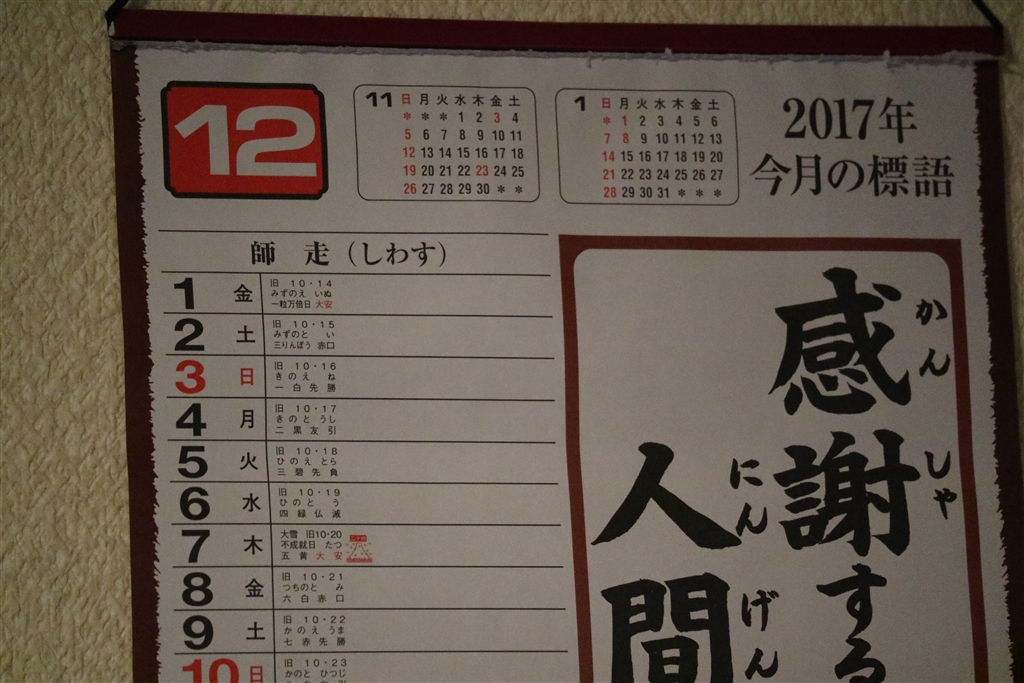 12
11 日 月 火 水 木 金 土
* * * 1 2 3 4
5 6 7 8 9 10 11
12 13 14 15 16 17 18
19 20 21 22 23 24 25
26 27 28 29 30 * *
1 日 月 火 水 木 金 土
* 1 2 3 4 5 6
7 8 9 10 11 12 13
14 15 16 17 18 19 20
21 22 23 24 25 26 27
28 29 30 31 * * *
2017年
今月の標語
師 走（しわす）
1 金 旧 10・14
みずのえ いぬ
一粒万倍日 大安
2 土 旧 10・15
みずのと い
三りんぼう 赤口
3 日 旧 10・16
きのえ ね
一白先勝
4 月 旧 10・17
きのと うし
二黒友引
5 火 旧 10・18
ひのえ とら
三碧先負
6 水 旧 10・19
ひのと う
四緑仏滅
7 木 大雪 旧10・20
不成就日 たつ
五黄 大安
8 金 旧 10・21
つちのと み
六白赤口
9 土 旧 10・22
かのえ うま
七赤先勝
10 日 旧 10・23
かのと ひつじ
感謝する
かん しゃ
人間
にん げん